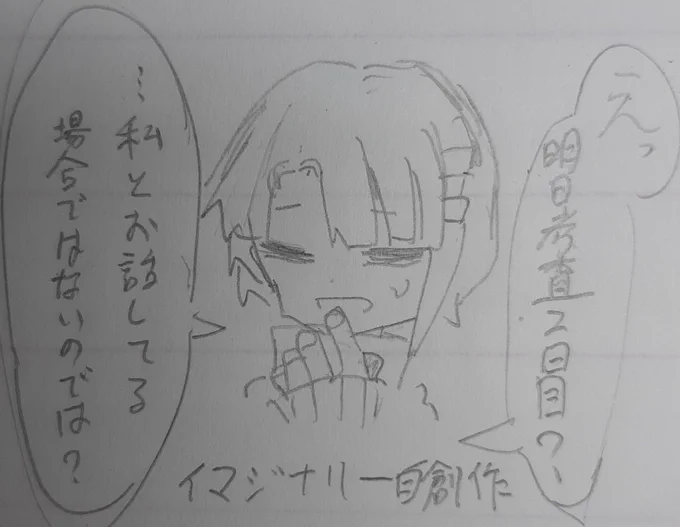 えっ
明日考査2日目?
…私とお話してる
場合ではないのでは?
イマジナリー自創作